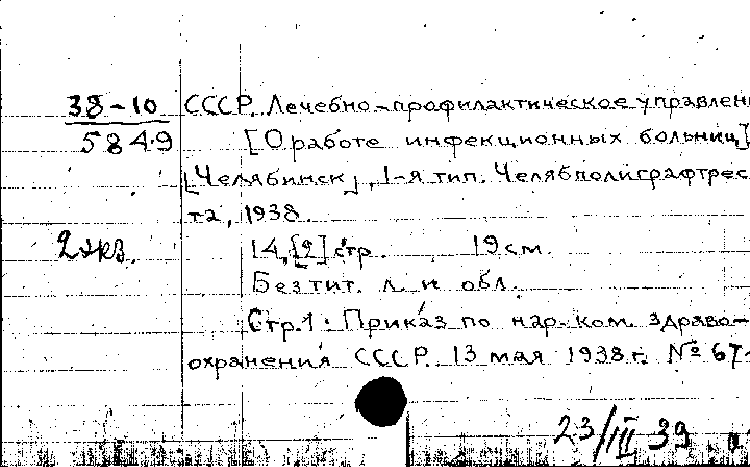 38-10 СССР. Лечебно-профилактическое управлени
5849 [О работе инфекционных больниц]
[Челябинск], 1-я тип. Челябполиграфтрес
та, 1938.
2 экз. 14, [2] стр. 19 см.
Без тит. л. и обл.
Стр. 1: Приказ по нар. ком. здраво-
охранения СССР. 13 мая 1938 г. № 67-
23/III 39